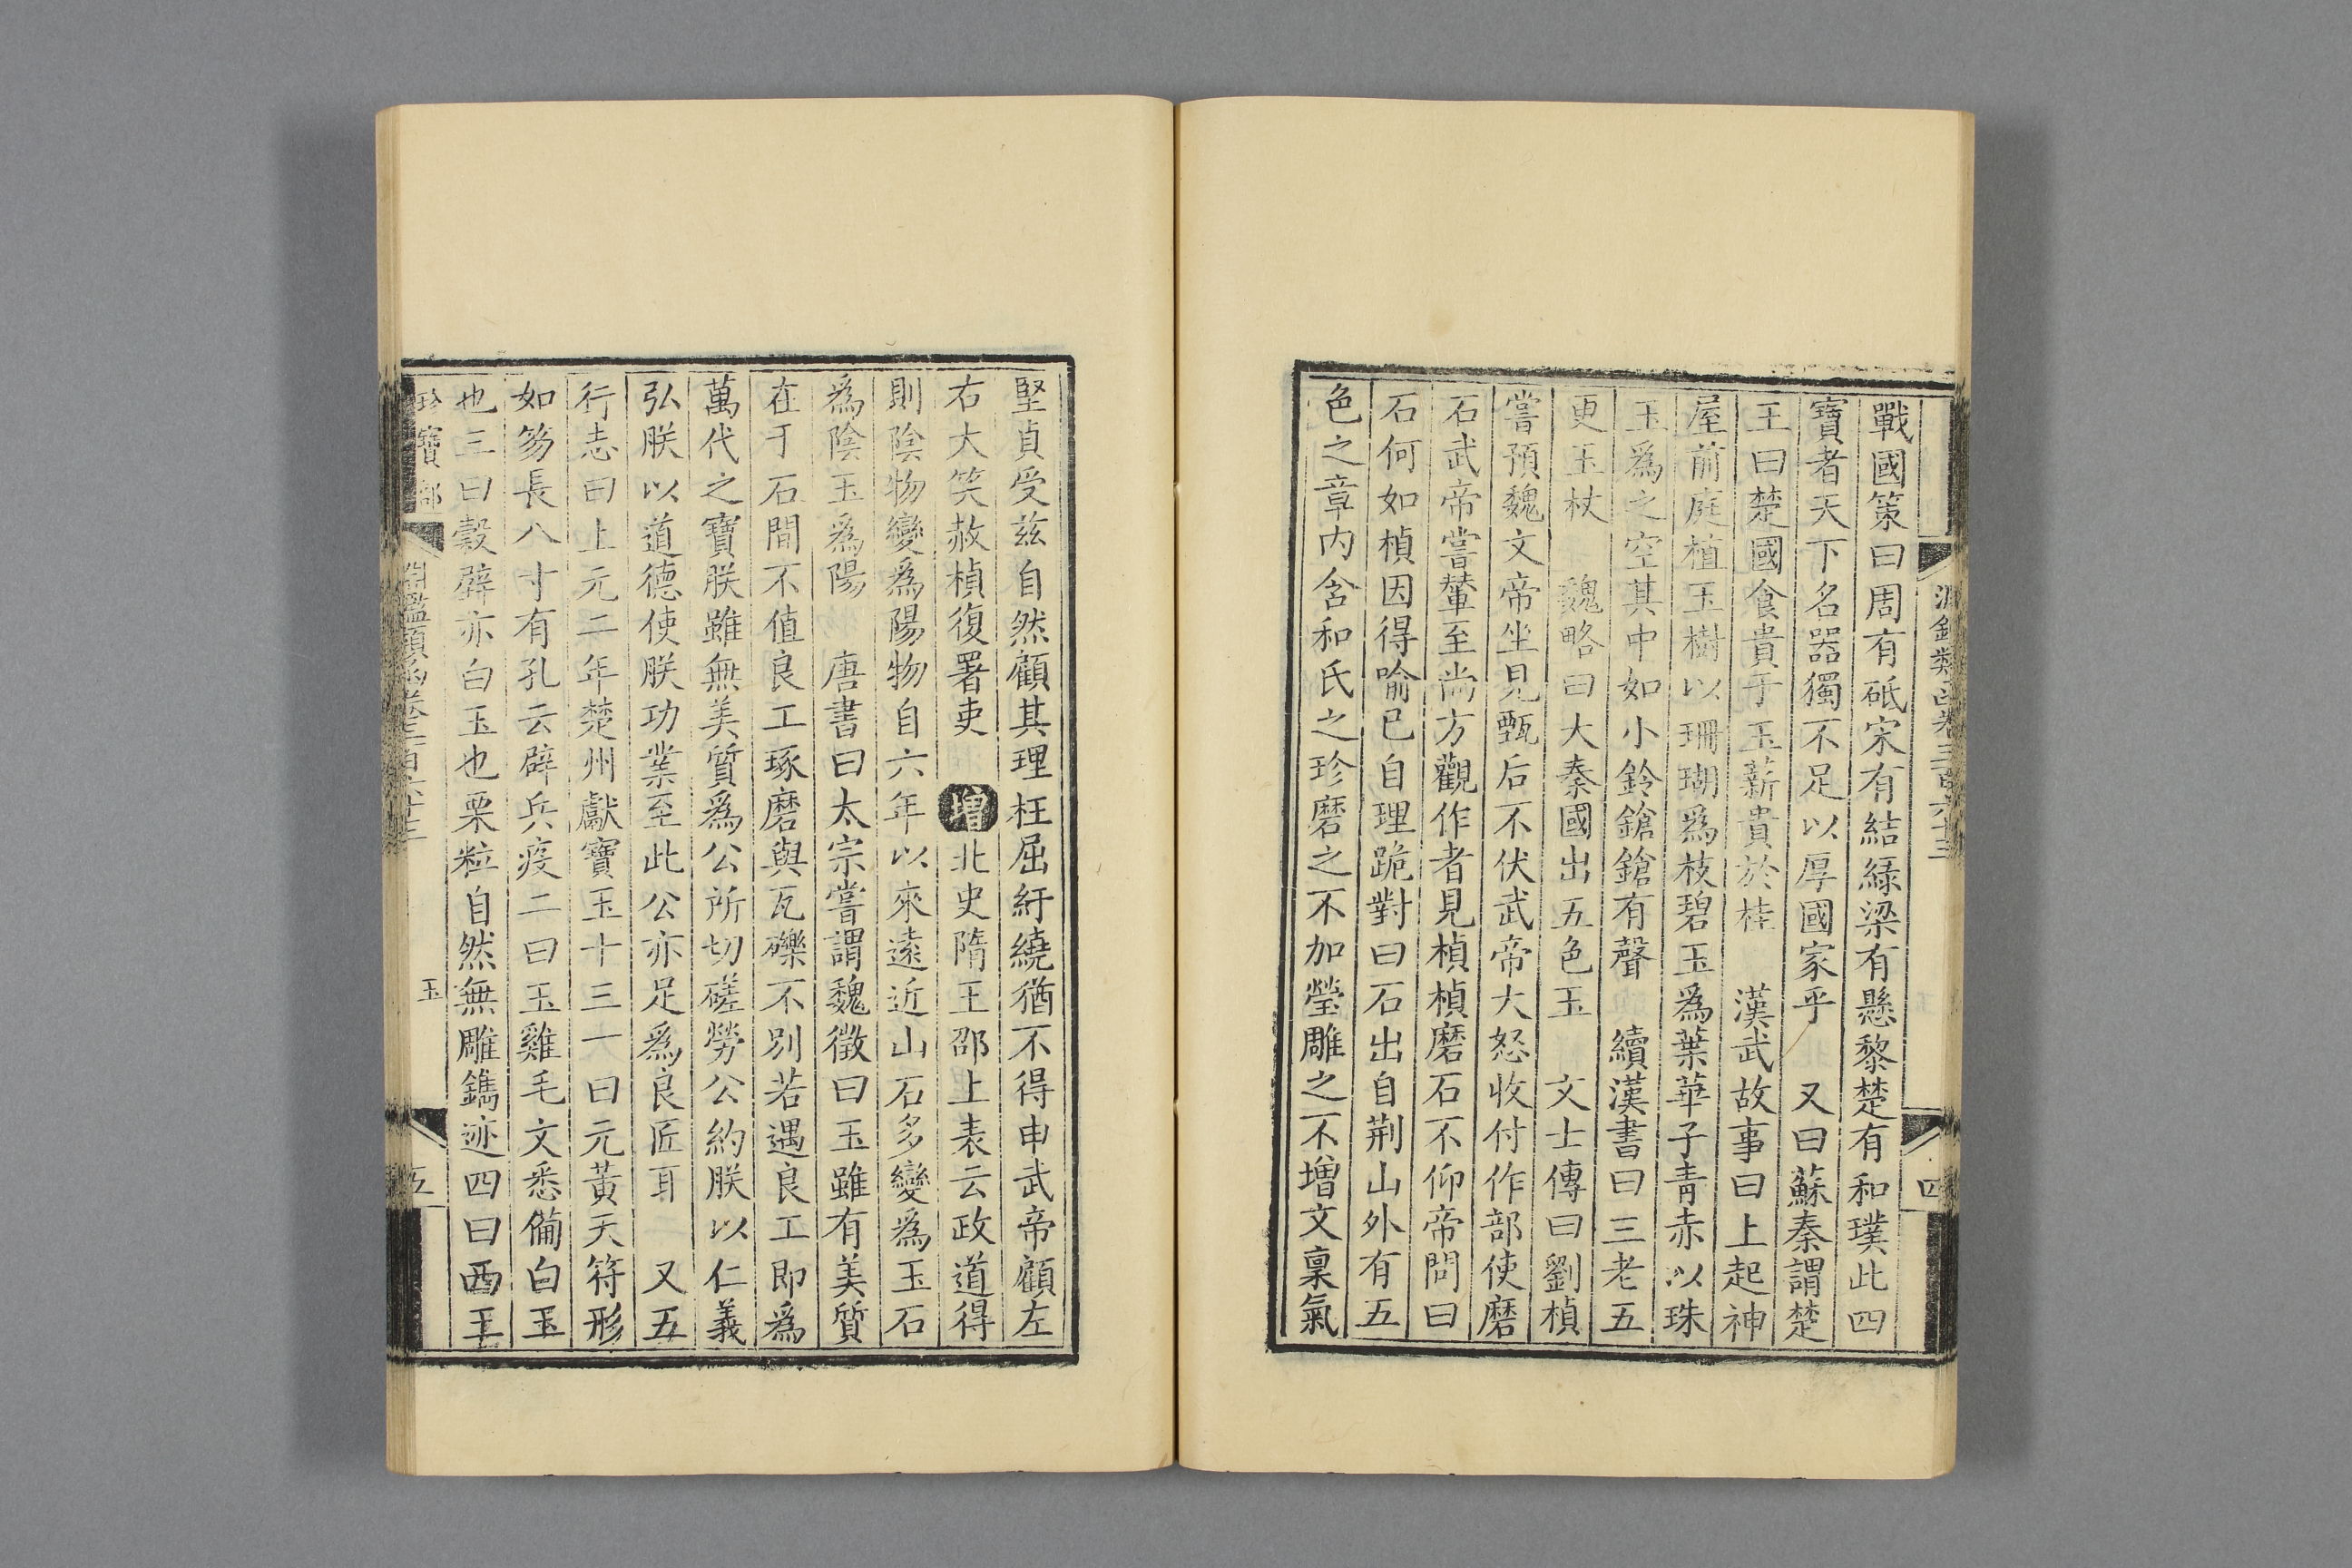 戰國策曰周有砥宋有結綠梁有懸黎楚有和璞此四
寶者天下名器獨不足以厚國家乎 又曰蘇秦謂楚
王曰楚國食貴于玉薪貴於桂 漢武故事曰上起神
屋前庭植玉樹以珊瑚爲枝碧玉爲葉華子青赤以珠
玉爲之空其中如小鈴鎗鎗有聲 續漢書曰三老五
更玉杖 魏略曰大秦國出五色玉 文士傳曰劉楨
嘗預魏文帝坐見甄后不伏武帝大怒收付作部使磨
石武帝嘗輦至尚方觀作者見楨楨磨石不仰帝問曰
石何如楨因得喻已自理跪對曰石出自荆山外有五
色之章内含和氏之珍磨之不加瑩雕之不增文稟氣
堅貞受兹自然顧其理枉屈紆繞猶不得申武帝顧左
右大笑赦楨復署吏 增北史隋王邵上表云政道得
則陰物變爲陽物自六年以來遠近山石多變爲玉石
爲陰玉爲陽 唐書曰太宗嘗謂魏徵曰玉雖有美質
在于石間不值良工琢磨與瓦礫不别若遇良工即爲
萬代之寶朕雖無美質爲公所切磋勞公約朕以仁義
弘朕以道德使朕功業至此公亦足爲良匠耳 又五
行志曰上元二年楚州獻寶玉十三一曰元黃天符形
如笏長八寸有孔云辟兵疫二曰玉雞毛文悉備白玉
也三曰穀璧亦白玉也栗粒自然無雕鐫迹四曰西王
珍寶部
玉
五